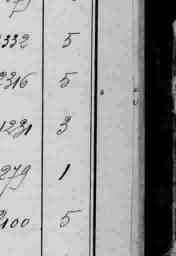 332 5
2316 5
1231 3
279 1
2100 5